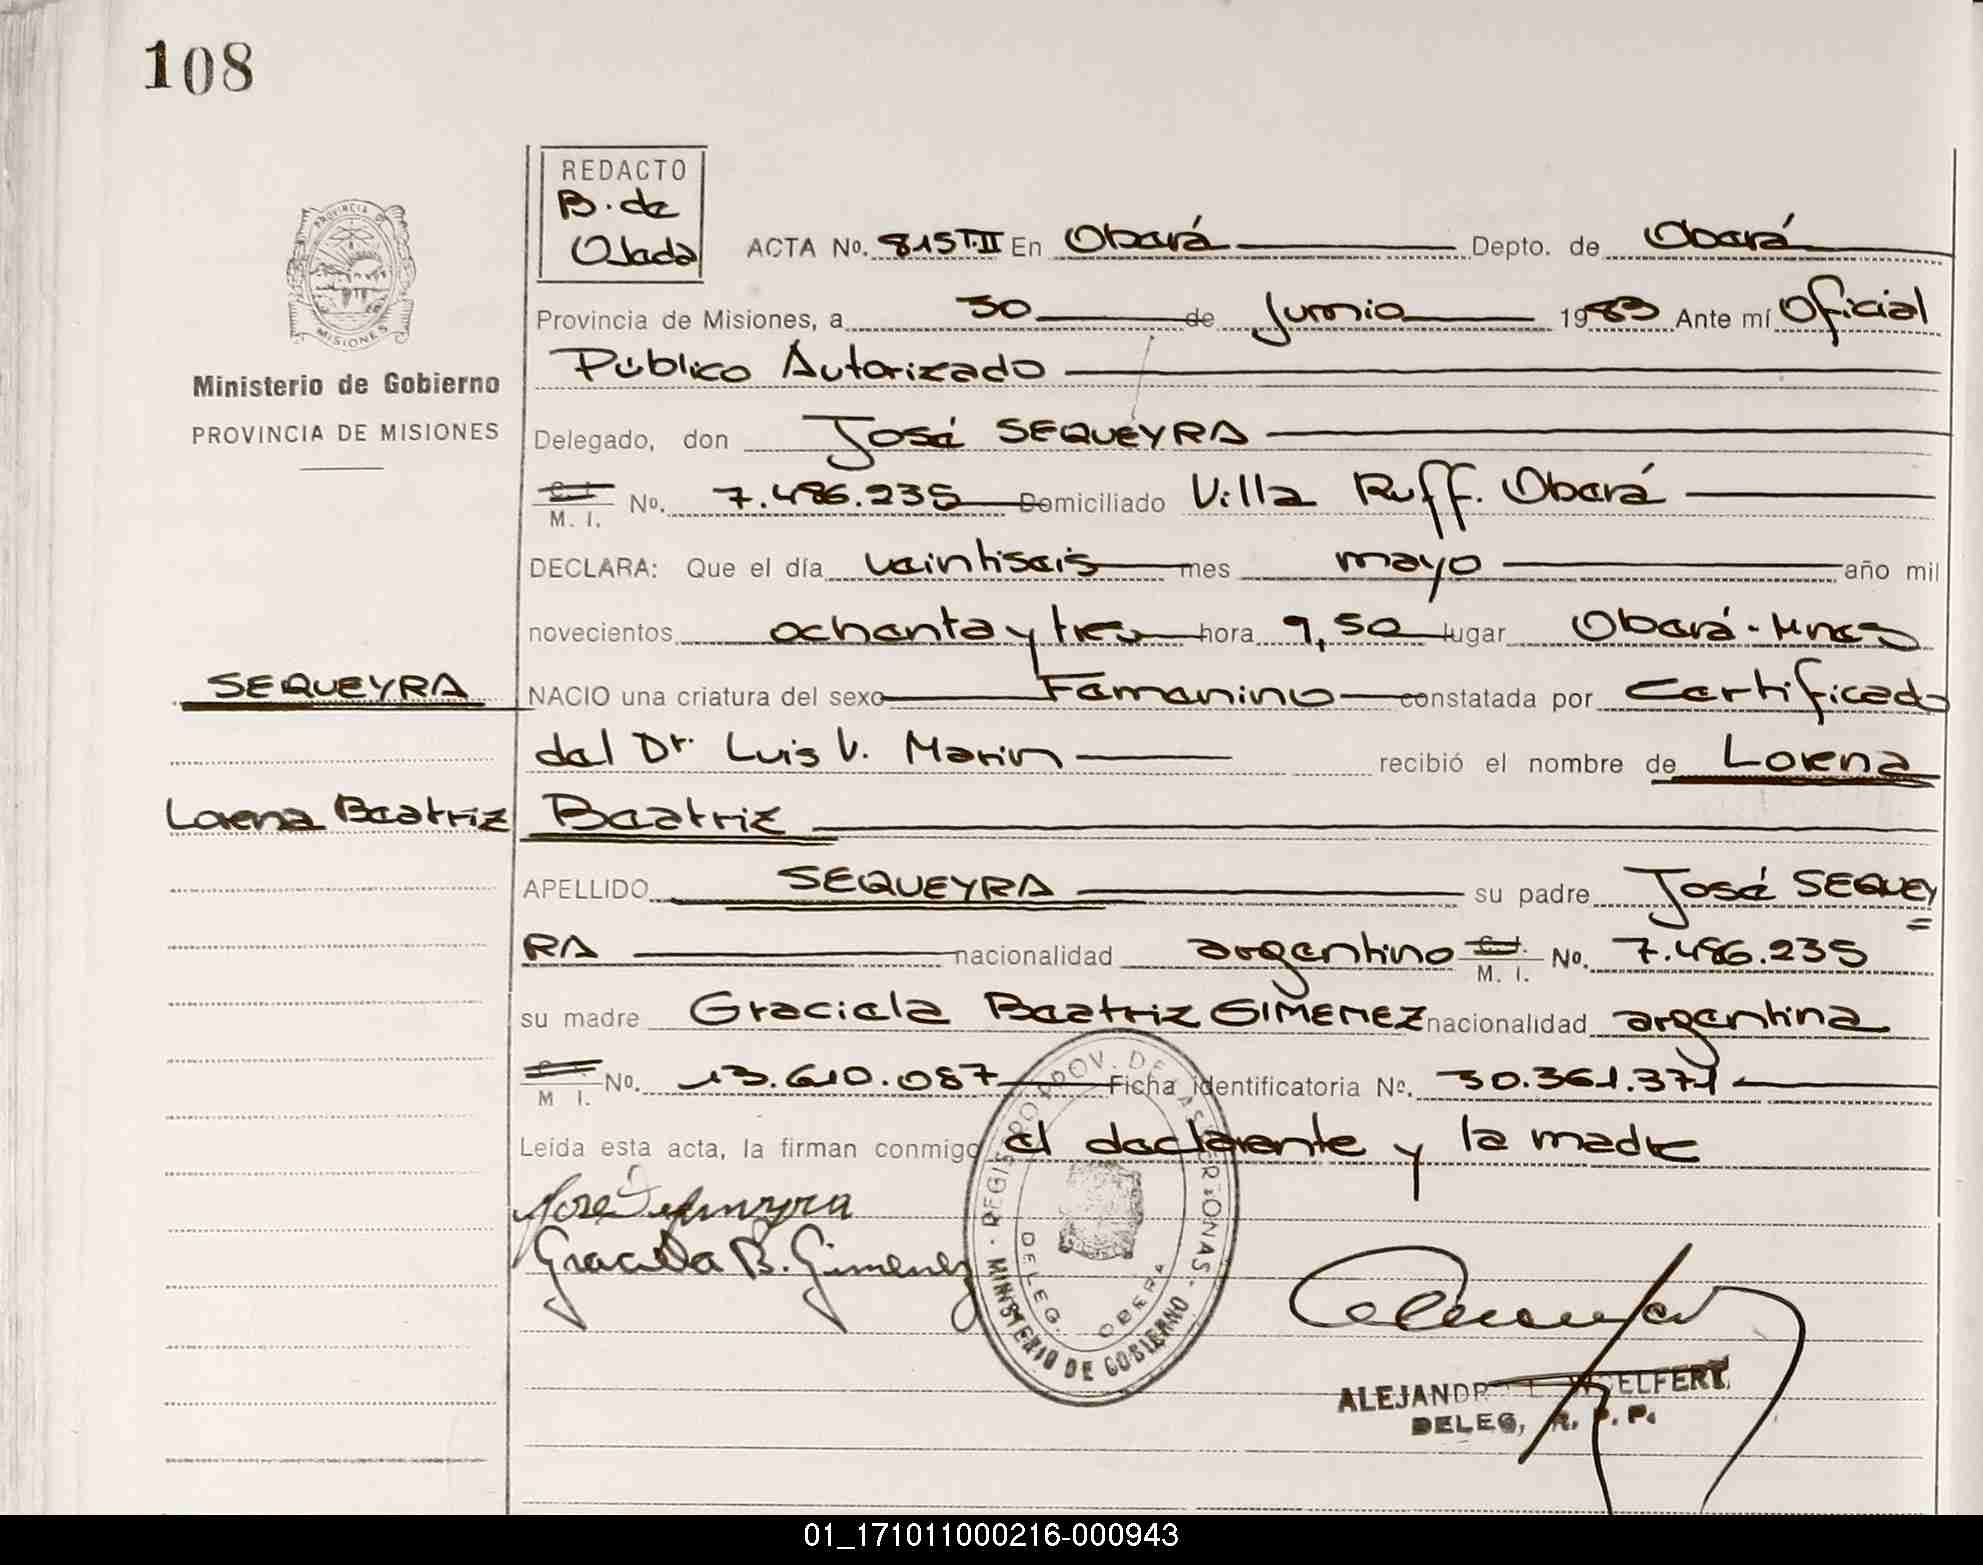 108
REDACTO
B. de
Ojeda
PROVINCIA DE
MISIONES
Ministerio de Gobierno
PROVINCIA DE MISIONES
ACTA No. 815 T.II En Oberá Depto. de Oberá
Provincia de Misiones, a 30 de Junio 1983 Ante mí Oficial
Público Autorizado
Delegado, don José SEQUEYRA
C. I.
M. I. No. 7.486.235 Domiciliado Villa Ruff. Oberá
DECLARA: Que el día veintiseis mes mayo año mil
novecientos ochenta y tres hora 9,50 lugar Oberá - Mnes
SEQUEYRA
NACIO una criatura del sexo Femenino constatada por certificado
del Dr. Luis V. Marin recibió el nombre de Lorena
Lorena Beatriz
Beatriz
APELLIDO SEQUEYRA su padre José SEQUEY
RA nacionalidad argentino C. I. M. I. No. 7.486.235
su madre Graciela Beatriz GIMENEZ nacionalidad argentina
C. I. M I. No. 13.610.087 Ficha identificatoria No. 30.361.371
Leída esta acta, la firman conmigo el declarante y la madre
José Sequeyra
Graciela B. Gimenez
REGISTRO PROV. DE LAS PERSONAS
MINISTERIO DE GOBIERNO
DELEG. OBERA
ALEJANDR
ELFERT
DELEG. R. P. P.
01_171011000216-000943